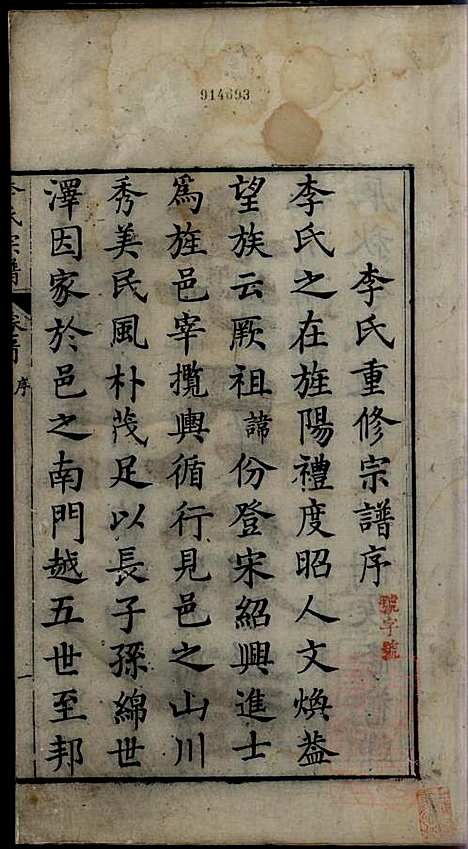 914693
李氏重修宗譜序
號字號
李氏之在旌陽禮度昭人文煥蓋
望族云厥祖諱份登宋紹興進士
為旌邑宰攬輿循行見邑之山川
秀美民風朴茂足以長子孫綿世
澤因家於邑之南門越五世至邦
李氏宗譜
序
一